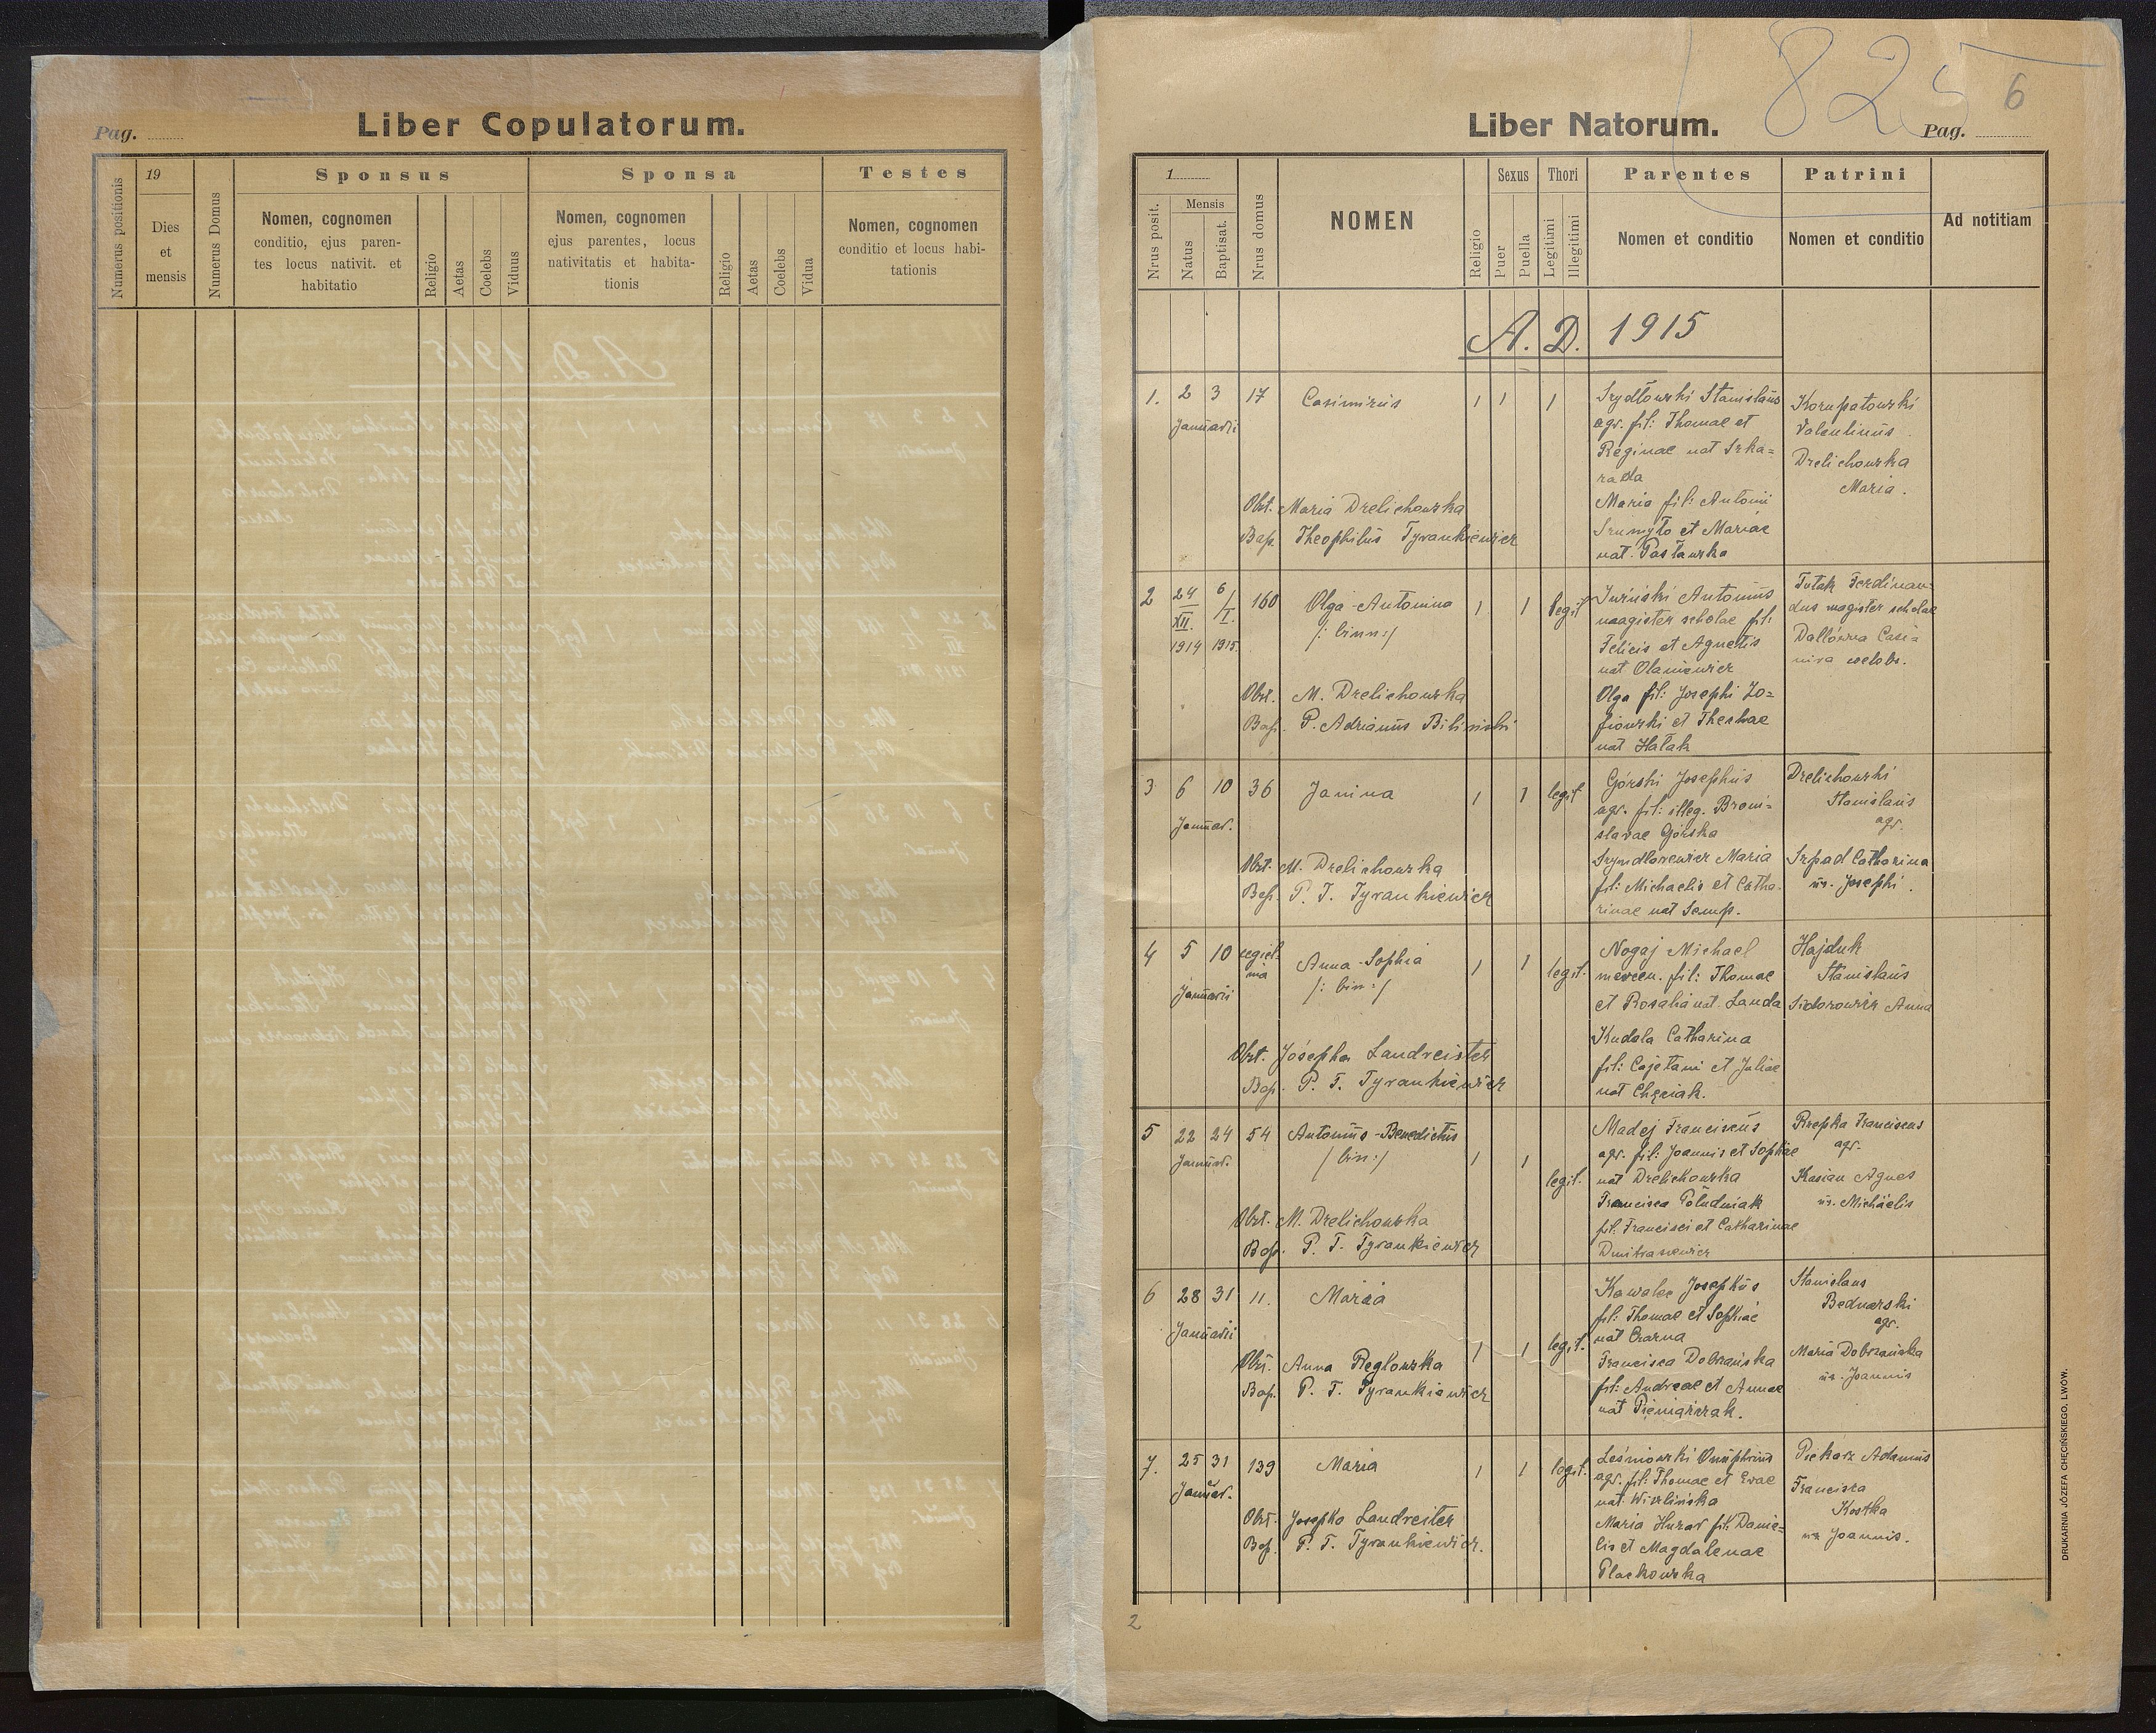 Pag.
Liber Copulatorum.
Numerus positionis
19
Dies
et
mensis
Numerus Domus
Sponsus
Nomen, cognomen
conditio, ejus paren-
tes locus nativit. et
habitatio
Religio
Aetas
Coelebs
Viduus
Sponsa
Nomen, cognomen
ejus parentes, locus
nativitatis et habita-
tionis
Religio
Aetas
Coelebs
Vidua
Testes
Nomen, cognomen
conditio et locus habi-
tationis
825
6
Liber Natorum.
Pag.
Nrus posit.
1
Mensis
Natus
Baptisat.
Nrus domus
NOMEN
Religio
Sexus
Puer
Puella
Thori
Legitimi
Illegitimi
Parentes
Nomen et conditio
Patrini
Nomen et conditio
Ad notitiam
A. D. 1915
1. 2 3 17 Casimirus 1 1 1
Januarii
Szydłowski Stanislaus
agr. fil: Thomae et
Reginae nat Szka=
rada
Maria fil: Antonii
Szumyło et Mariae
nat. Pasławska
Korupatowski
Valentinus
Drelichowska
Maria.
Obst. Maria Drelichowska
Bap. Theophilus Tyrankiewicz
2 24 XII. 1914 6/I. 1915. 160 Olga-Antonina 1 1 legit
/: binn:/
Juziński Antonius
magister scholae fil:
Felicis et Agnetis
nat Olaniewicz
Olga fil: Josephi Zo=
fiowski et Theclae
nat Hałak
Tutak Ferdinan=
dus magister scholae
Dallówna Casi=
mira coelebs.
Obst. M. Drelichowska
Bap. P. Adrianus Biliński
3 6 10 36 Janina 1 1 legit
Januar.
Górski Josephus
agr. fil: illeg. Broni=
slavae Górska
Szyndlarewicz Maria
fil: Michaelis et Catha-
rinae nat Semp.
Drelichowski
Stanislaus
agr.
Szpad Catharina
ux. Josephi.
Obst. M. Drelichowska
Bap. P. T. Tyrankiewicz
4 5 10 cegiel=
nia
Anna-Sophia 1 1 legit.
/: bin:/
Januarii
Nogaj Michael
mercen. fil: Thomae
et Rosalia nat. Landa
Kudala Catharina
fil: Cajetani et Juliae
nat Chęciak.
Hajduk
Stanislaus
Sidorowicz Anna
Obst. Josepha Landreister
Bap. P. T. Tyrankiewicz
5 22 24 54 Antonius-Benedictus 1 1 legit.
Januar.
/bin:/
Madej Franciscus
agr. fil: Joannis et Sophiae
nat Drelichowska
Francisca Południak
fil: Francisci et Catharinae
Dmitrasiewicz
Rzepka Franciscus
agr.
Kasian Agnes
ux. Michaelis
Obst. M. Drelichowska
Bap. P. T. Tyrankiewicz
6 28 31 11. Maria 1 1 legit.
Januarii
Kawalec Josephus
fil: Thomae et Sophiae
nat Czarna
Francisca Dobrzańska
fil: Andreae et Annae
nat Pieniążczak.
Stanislaus
Bednarski
agr.
Maria Dobrzańska
ux. Joannis
Obst. Anna Reglowska
Bap. P. T. Tyrankiewicz
7. 25 31 139 Maria 1 1 legit.
Januar.
Leśniowski Onuphrius
agr. fil: Thomae et Evae
nat. Wiślińska
Maria Huzar fil: Danie=
lis et Magdalenae
Plackowska
Piekarz Adamus
Francisca
Kostka
ux Joannis.
Obst. Josepha Landreister
Bap. P. T. Tyrankiewicz.
2
DRUKARNIA JÓZEFA CHĘCIŃSKIEGO, LWÓW.